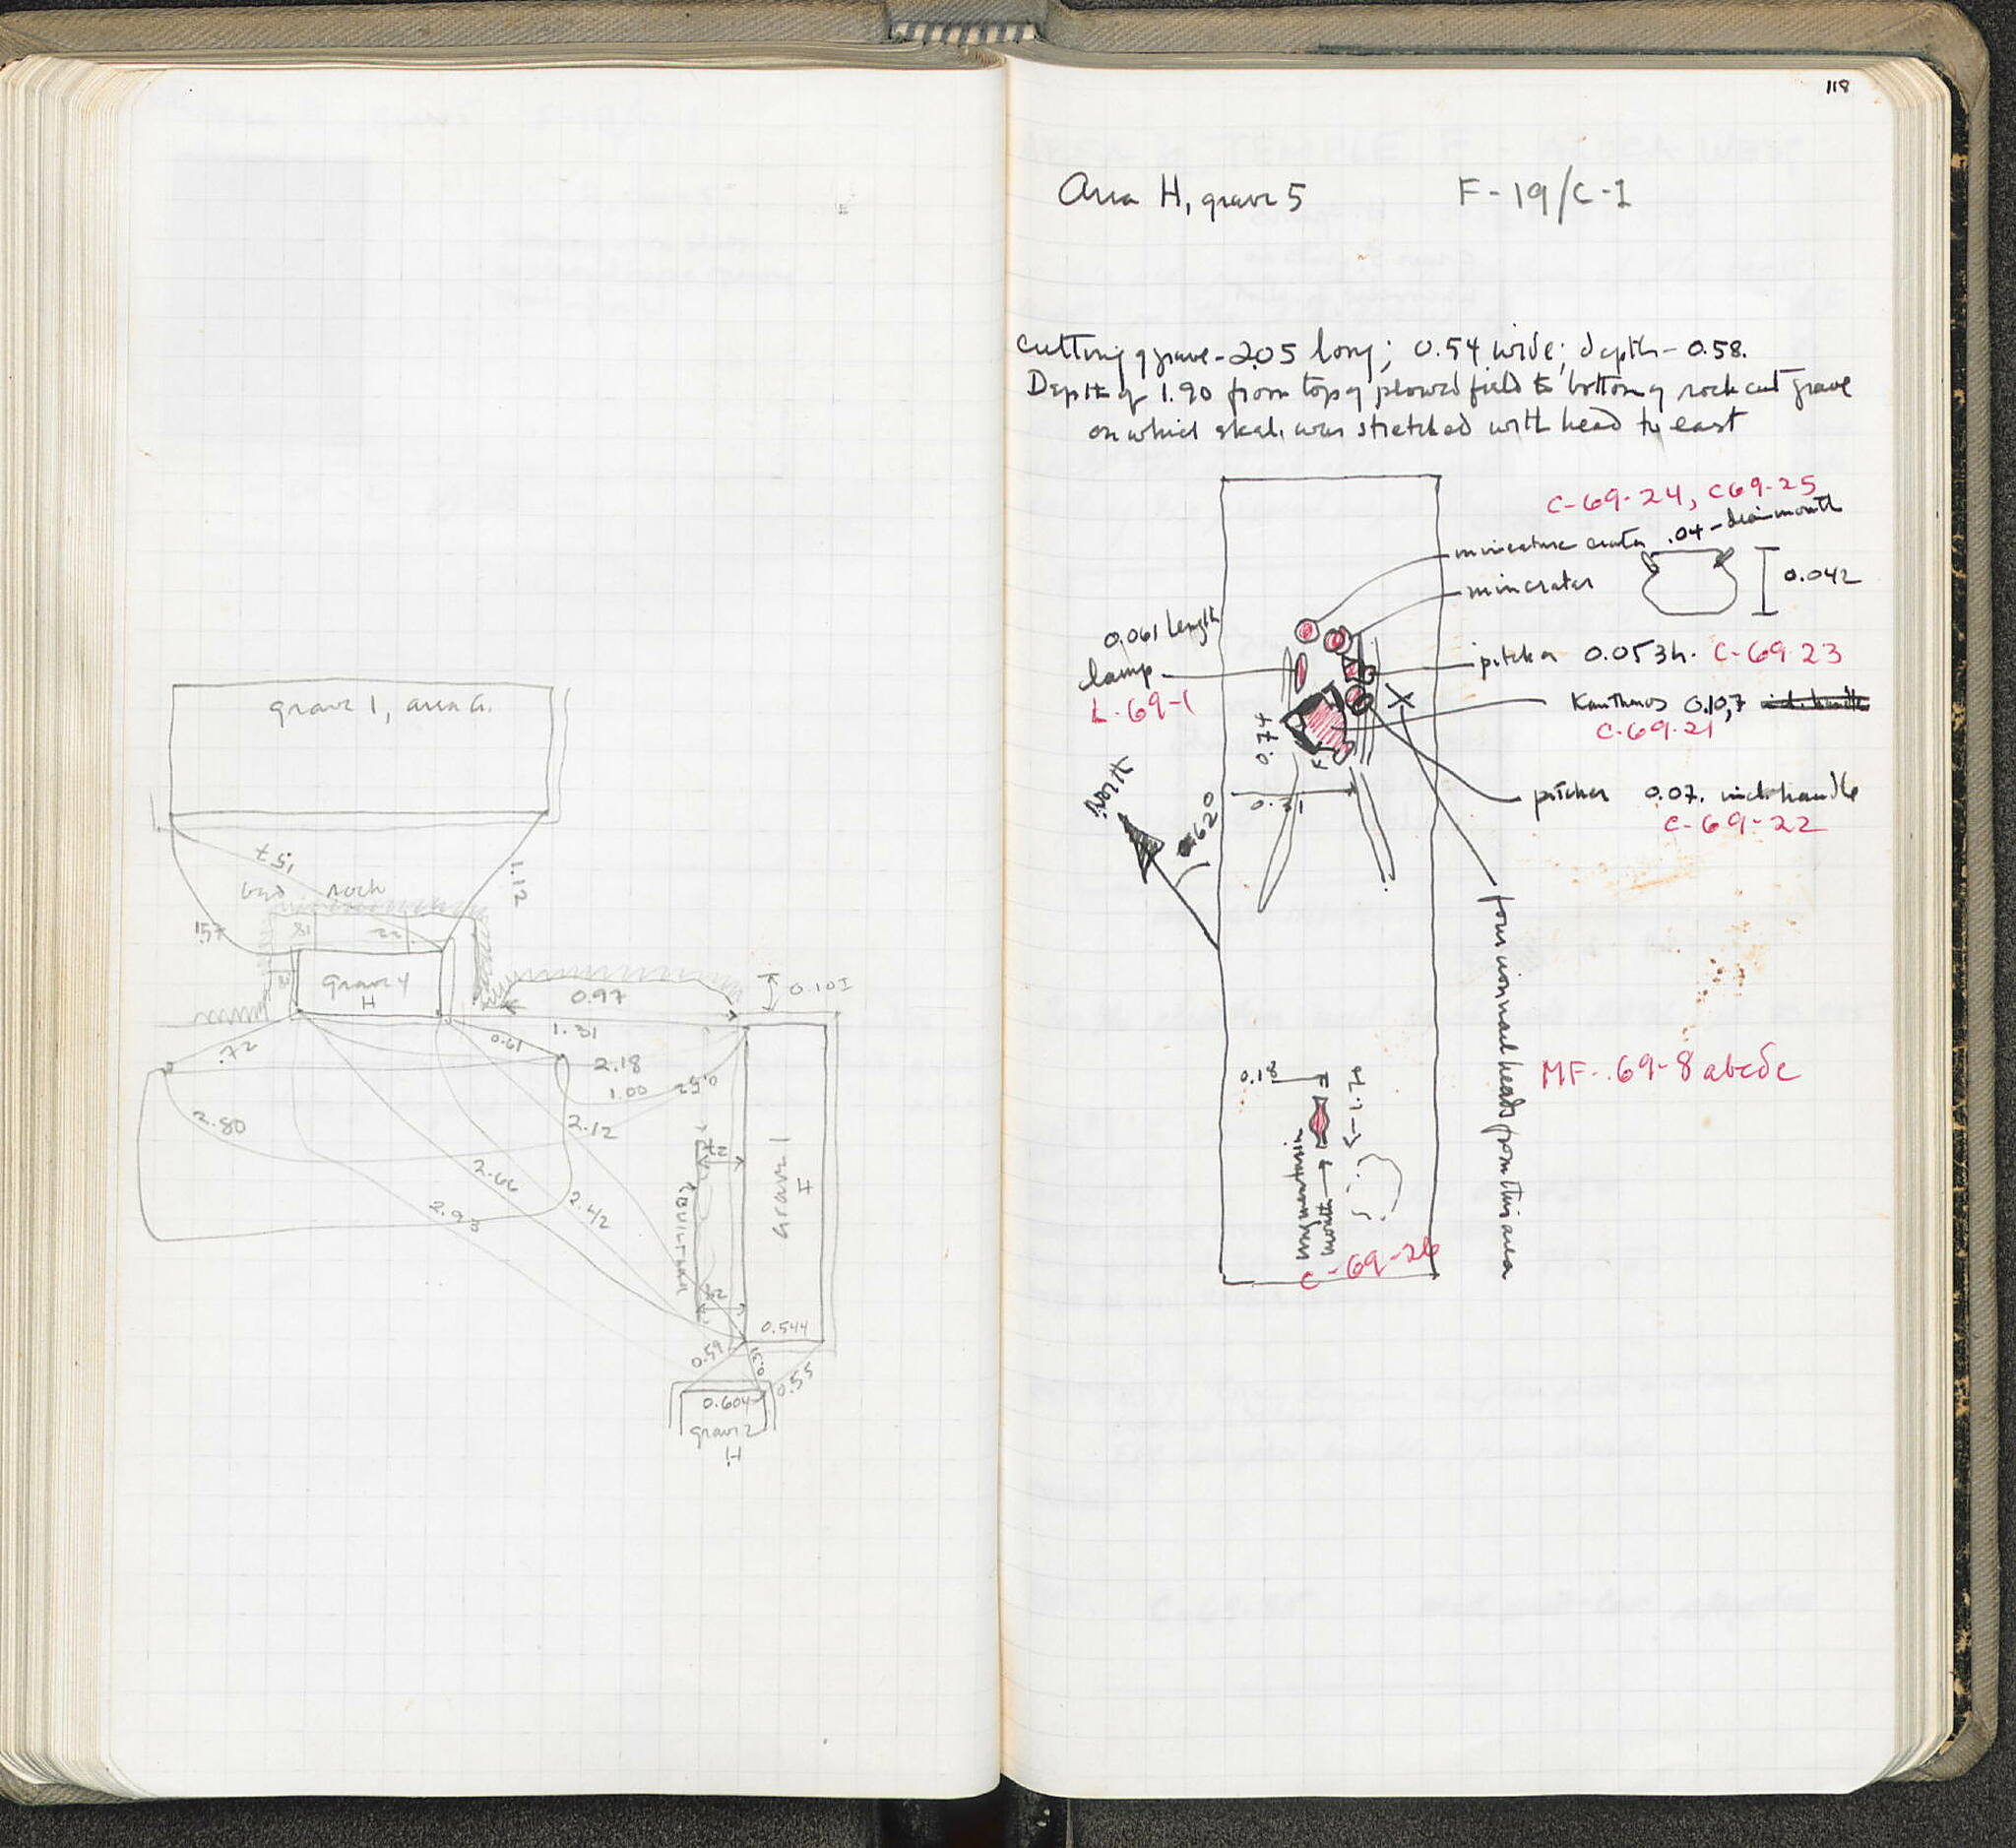 grave 1, area G.
.57
1.12
bed rock
.57
18
22
grave 4
H
0.97
0.101
1.31
.72
0.61
2.18
1.00
0.52
2.80
2.12
2.66
2.42
2.93
grave 1
H
0.544
0.59
0.51
0.55
0.604
grave 2
H
118
Area H, grave 5 F-19/C-1
cutting of grave - 2.05 long; 0.54 wide; depth - 0.58.
Depth of 1.90 from top of plowed field to bottom of rock cut grave
on which skel. was stretched with head to east
C-69-24, C69-25
miniature crater .04 - diam mouth
min crater
0.042
0.061 length
lamp
L-69-1
pitcher 0.053 h. C-69-23
Kantharos 0.107
C-69-21
0.74
pitcher 0.07. incl. handle
C-69-22
North
620
0.31
four iron nail heads from this area
MF-69-8 abcde
0.18
1.79
unguentarium
mouth
C-69-26